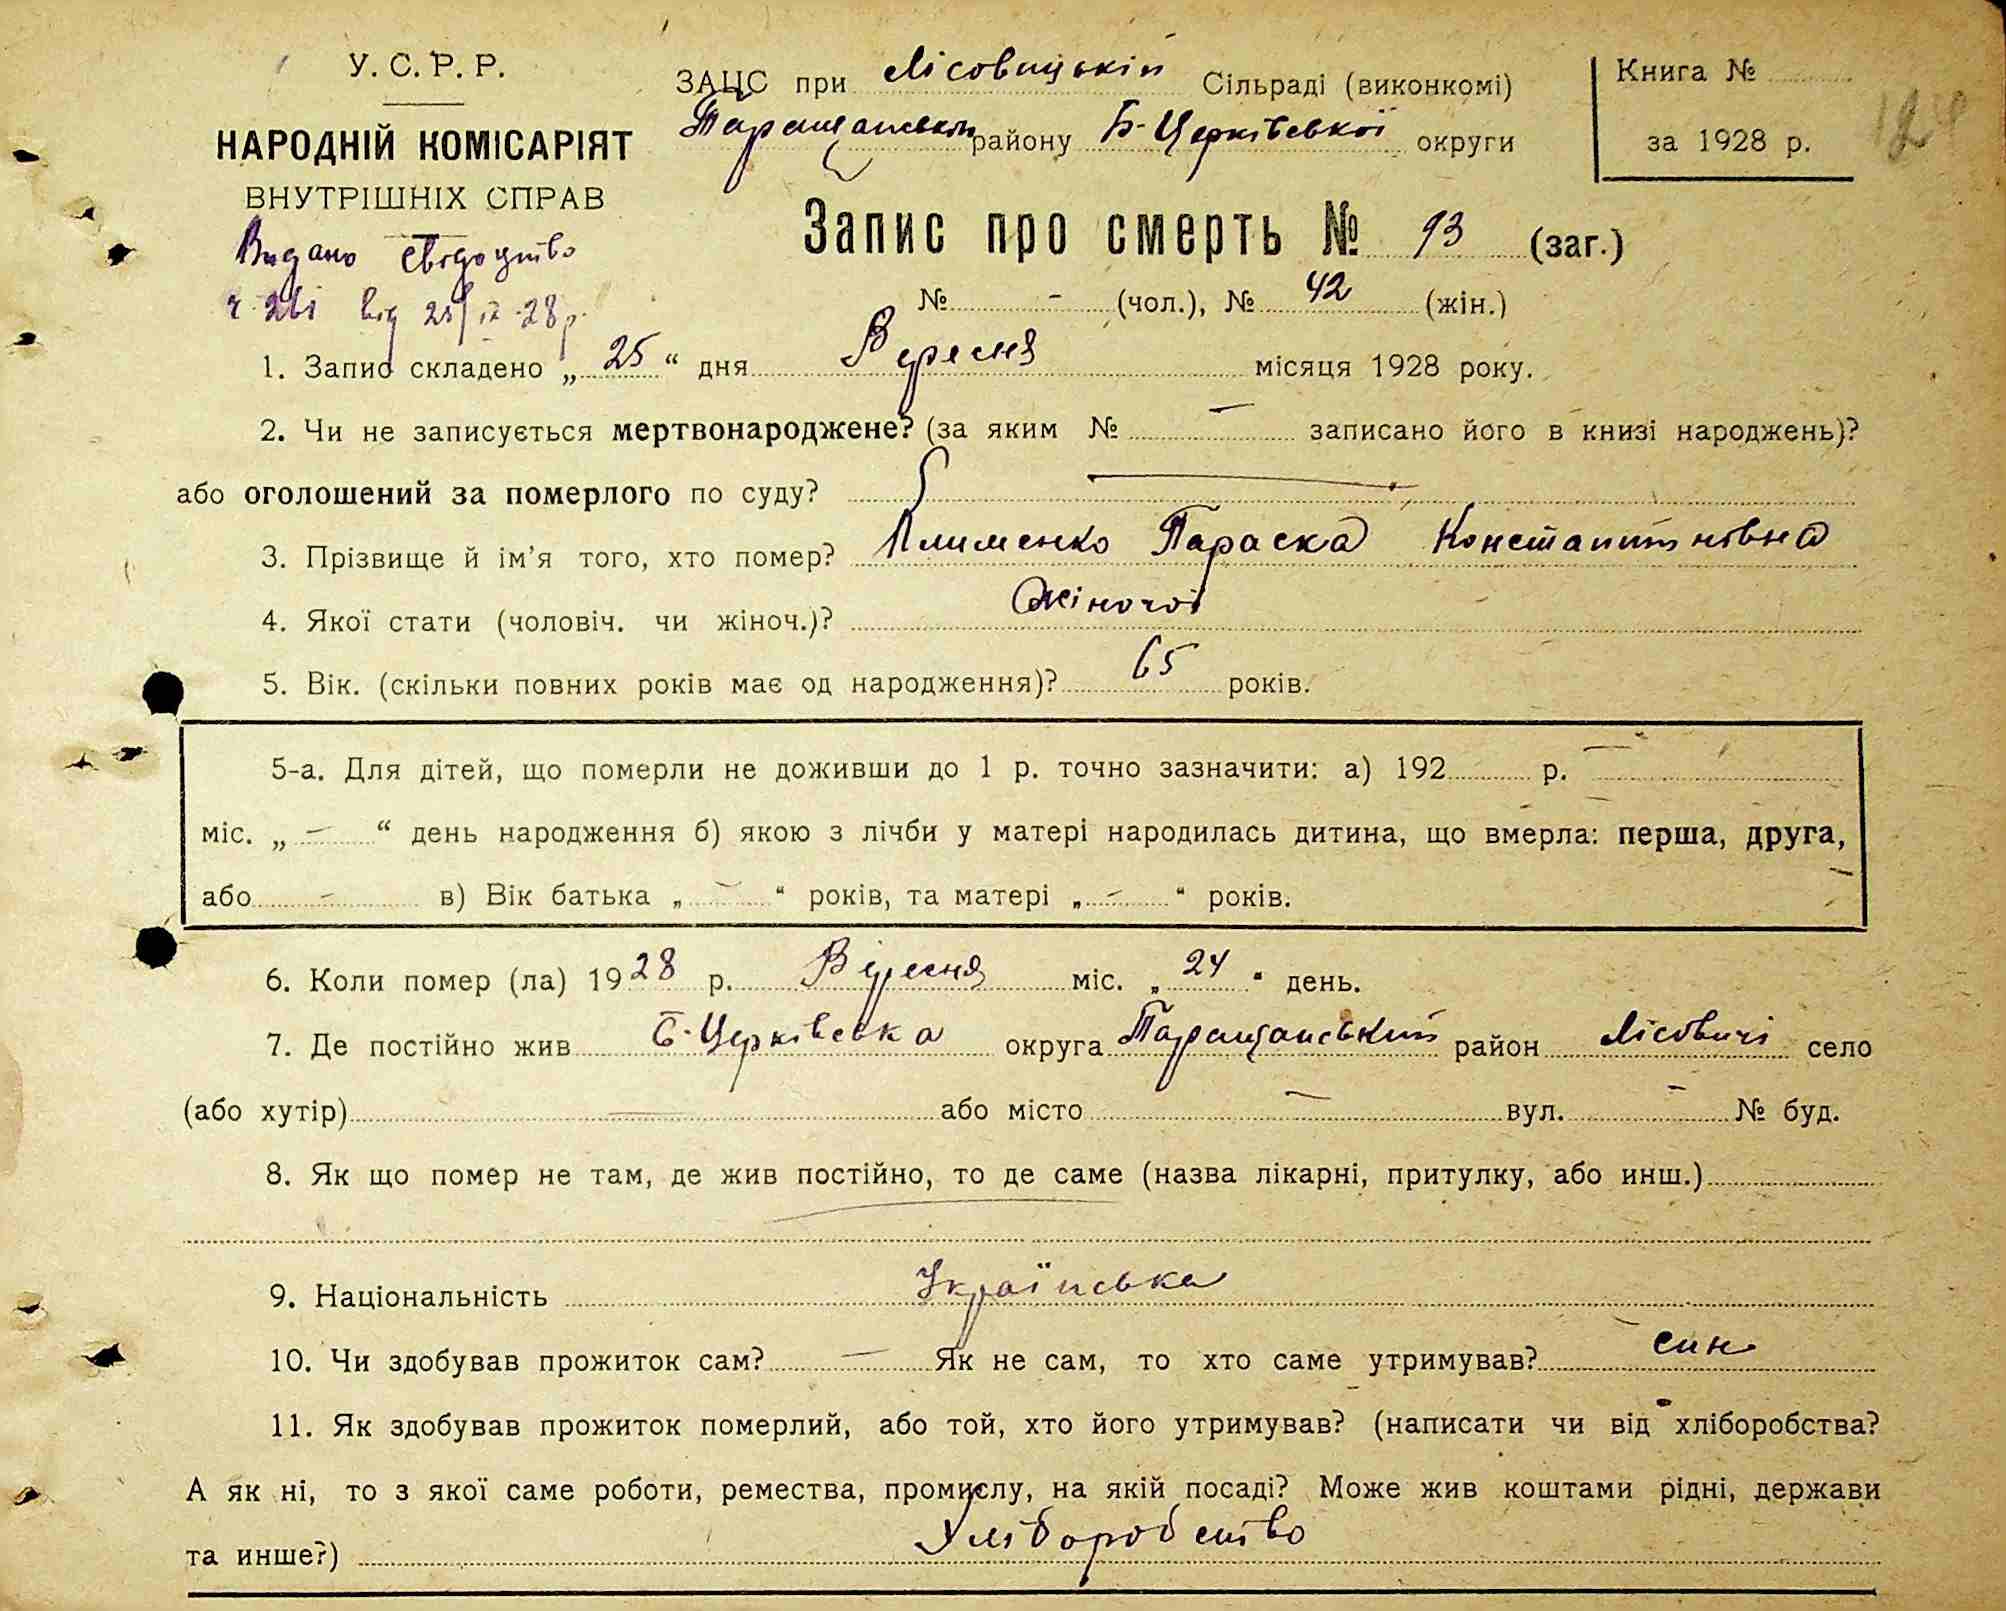 У. С. Р. Р.
НАРОДНІЙ КОМІСАРІЯТ
ВНУТРІШНІХ СПРАВ
Видано свідоцтво
ч. 261 від 25/IX-28 р.
ЗАЦС при Лісовицькій Сільраді (виконкомі)
Таращанськ району Б-Церківської округи
Книга №
за 1928 р.
Запис про смерть № 93 (заг.)
№ - (чол.), № 42 (жін.)
1. Запис складено „ 25 “ дня Вересня місяця 1928 року.
2. Чи не записується мертвонароджене? (за яким № — записано його в книзі народжень)?
або оголошений за померлого по суду? —
3. Прізвище й ім'я того, хто помер? Параска Константиновна
4. Якої стати (чоловіч. чи жіноч.)? Жіночої
5. Вік. (скільки повних років має од народження)? 65 років.
5-а. Для дітей, що померли не доживши до 1 р. точно зазначити: а) 192 р. —
міс. „ — “ день народження б) якою з лічби у матері народилась дитина, що вмерла: перша, друга,
або — в) Вік батька „ — “ років, та матері „ — “ років.
6. Коли помер (ла) 1928 р. Вересня міс. „ 24 “ день.
7. Де постійно жив Б-Церківська округа Таращанський район Лісовичі село
(або хутір) — або місто — вул. — № буд.
8. Як що помер не там, де жив постійно, то де саме (назва лікарні, притулку, або инш.)
9. Національність Українська
10. Чи здобував прожиток сам? — Як не сам, то хто саме утримував? син
11. Як здобував прожиток померлий, або той, хто його утримував? (написати чи від хліборобства?
А як ні, то з якої саме роботи, ремества, промислу, на якій посаді? Може жив коштами рідні, держави
та инше?) Хліборобство